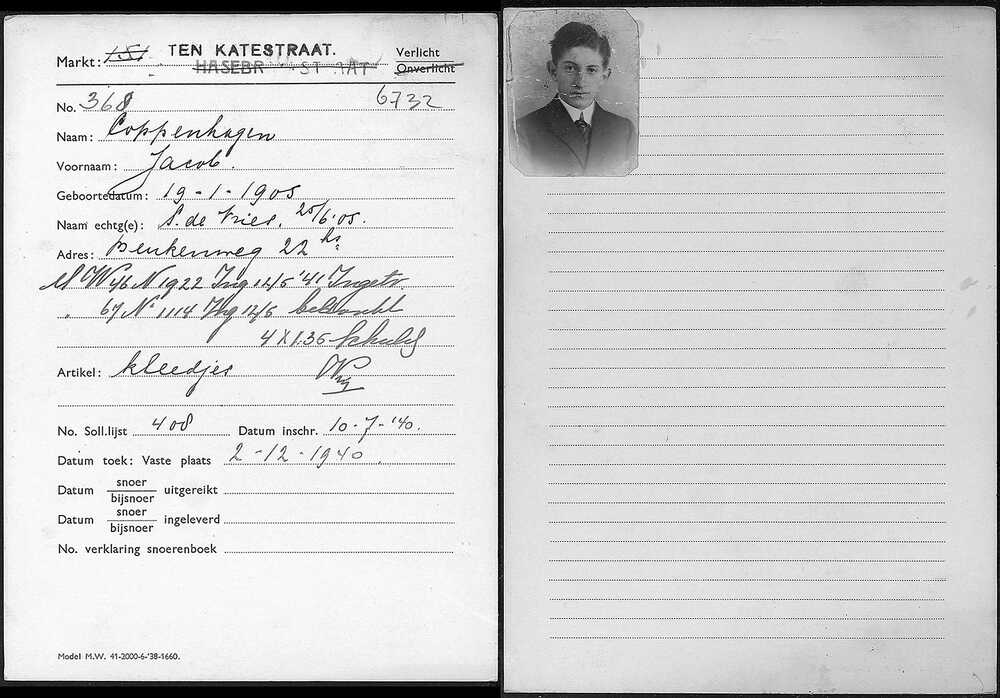 Markt: 151 TEN KATESTRAAT. Verlicht
HASEBR STRAAT Onverlicht
No. 368 6732
Naam: Coppenhagen
Voornaam: Jacob.
Geboortedatum: 19-1-1905
Naam echtg(e): S. de Vries. 25/6.05.
Adres: Beukenweg 22 hs
M W 46 N 1922 Ing 12/5 '41 Ingetr.
" 67 No 1114 Ing 12/5
4 X 1.35 schuld
Artikel: kleedjes
No. Soll.lijst 408 Datum inschr. 10-7-'40.
Datum toek: Vaste plaats 2-12-1940.
Datum snoer/bijsnoer uitgereikt
Datum snoer/bijsnoer ingeleverd
No. verklaring snoerenboek
Model M.W. 41-2000-6-'38-1660.